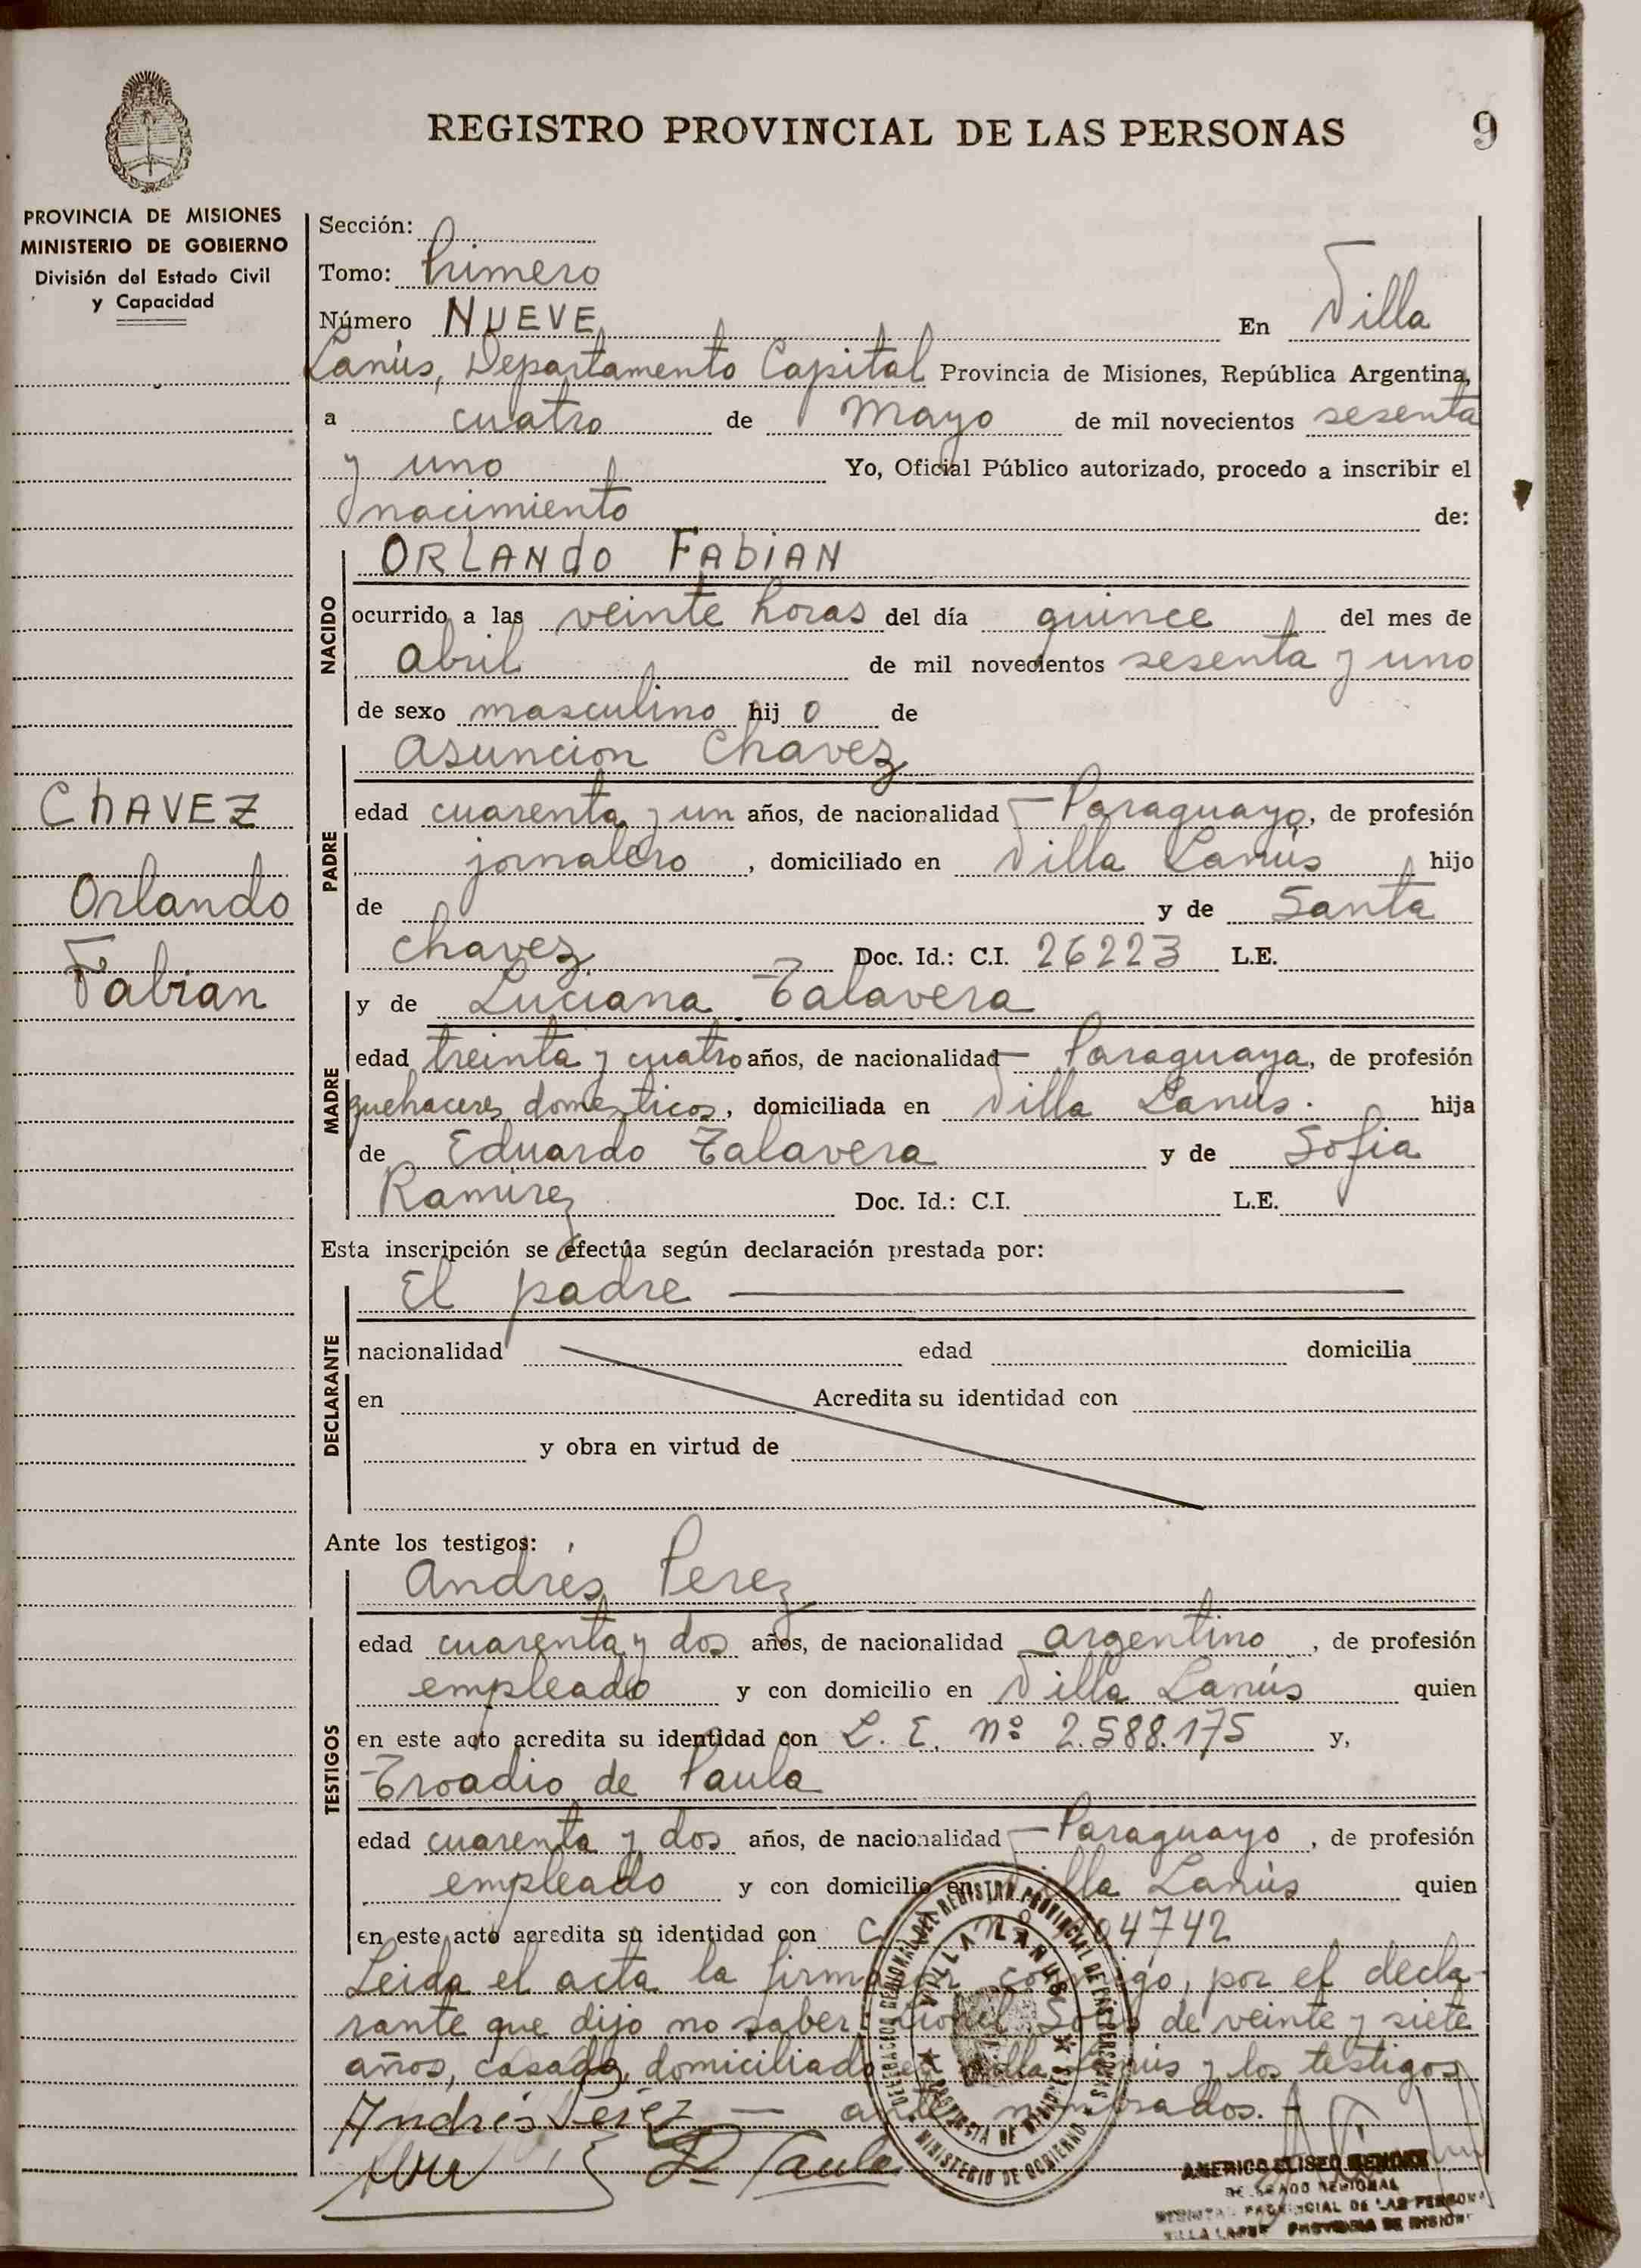 REGISTRO PROVINCIAL DE LAS PERSONAS 9
PROVINCIA DE MISIONES
MINISTERIO DE GOBIERNO
División del Estado Civil
y Capacidad
Sección:
Tomo: Primero
Número NUEVE En Villa
Lanús, Departamento Capital Provincia de Misiones, República Argentina,
a cuatro de Mayo de mil novecientos sesenta
y uno Yo, Oficial Público autorizado, procedo a inscribir el
nacimiento de:
NACIDO
ORLANdO FAbiAN
ocurrido a las veinte horas del día quince del mes de
Abril de mil novecientos sesenta y uno
de sexo masculino hij o de
PADRE
Asuncion Chavez
ChAVEZ
Orlando
Fabian
edad cuarenta y un años, de nacionalidad Paraguayo, de profesión
jornalero, domiciliado en Villa Lanús hijo
de y de Santa
Chavez Doc. Id.: C.I. 26223 L.E.
MADRE
y de Luciana Talavera
edad treinta y cuatro años, de nacionalidad Paraguaya, de profesión
quehaceres domesticos, domiciliada en Villa Lanús. hija
de Eduardo Talavera y de Sofia
Ramirez Doc. Id.: C.I. L.E.
Esta inscripción se efectúa según declaración prestada por:
DECLARANTE
El padre
nacionalidad edad domicilia
en Acredita su identidad con
y obra en virtud de
Ante los testigos:
TESTIGOS
Andrés Perez
edad cuarenta y dos años, de nacionalidad argentino, de profesión
empleado y con domicilio en Villa Lanús quien
en este acto acredita su identidad con L. E. Nº 2.588.175 y,
Troadio de Paula
edad cuarenta y dos años, de nacionalidad Paraguayo, de profesión
empleado y con domicilio en Villa Lanús quien
en este acto acredita su identidad con C 04742
Leida el acta la firman conmigo, por el decla-
rante que dijo no saber, de veinte y siete
años, casado, domiciliado en Villa Lanús y los testigos
Andrés Pérez — antes nombrados.
Paula
DELEGACION REGIONAL DEL REGISTRO PROVINCIAL DE LAS PERSONAS
MINISTERIO DE GOBIERNO
VILLA LANUS
PROVINCIA DE MISIONES
AMERICO ELISEO
DELEGADO REGIONAL
REGISTRO PROVINCIAL DE LAS PERSONAS
VILLA LANUS PROVINCIA DE MISIONES